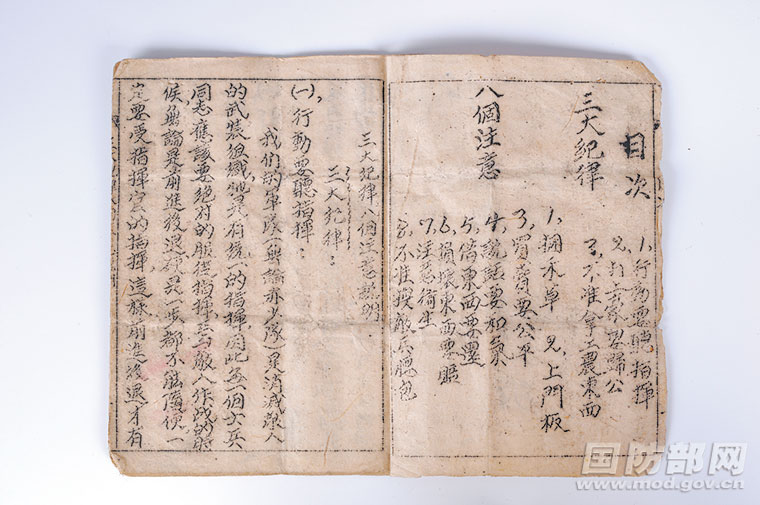 目次
三大紀律
1,行動要聽指揮
2,打土豪要歸公
3,不准拿工農東西
八個注意
1,捆禾草 2,上門板
3,買賣要公平
4,說話要和氣
5,借東西要還
6,損壞東西要賠
7,注意衛生
8,不准搜敵兵腰包
三大紀律八個注意說明
三大紀律:
(一),行動要聽指揮:
我們的軍隊無論赤少隊是消滅敵人
的武裝組織就是有統一的指揮因此每個士兵
同志應該要絕對的服從指揮與敵人作战的時
候無論是前進後退就是一步都不能隨便一
定要受指揮官的指揮這樣前進後退才有
国防部网
www.mod.gov.cn